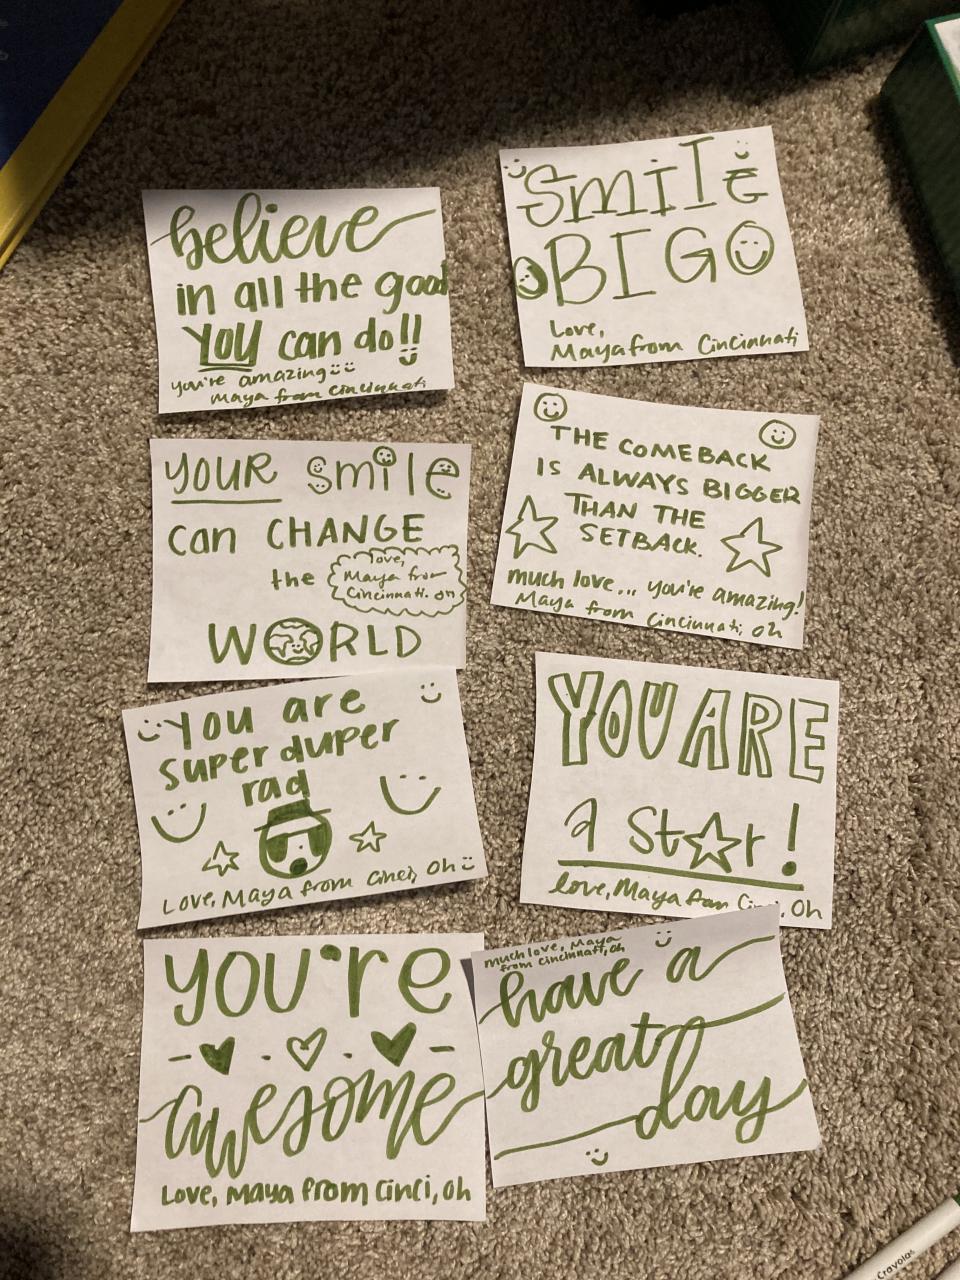 believe
in all the good
YOU can do!!
you're amazing
Maya from Cincinnati
SMILE
BIG
Love,
Maya from Cincinnati
YOUR smile
can CHANGE
the
love,
Maya from
Cincinnati, OH
WORLD
THE COMEBACK
IS ALWAYS BIGGER
THAN THE
SETBACK.
much love... you're amazing!
Maya from Cincinnati, Oh
You are
super duper
rad
Love, Maya from Cinci, Oh
YOU ARE
A Star!
love, Maya from Cinci, Oh
you're
awesome
Love, Maya from Cinci, Oh
much love, Maya
from Cincinnati, Oh
have a
great
day
Crayola